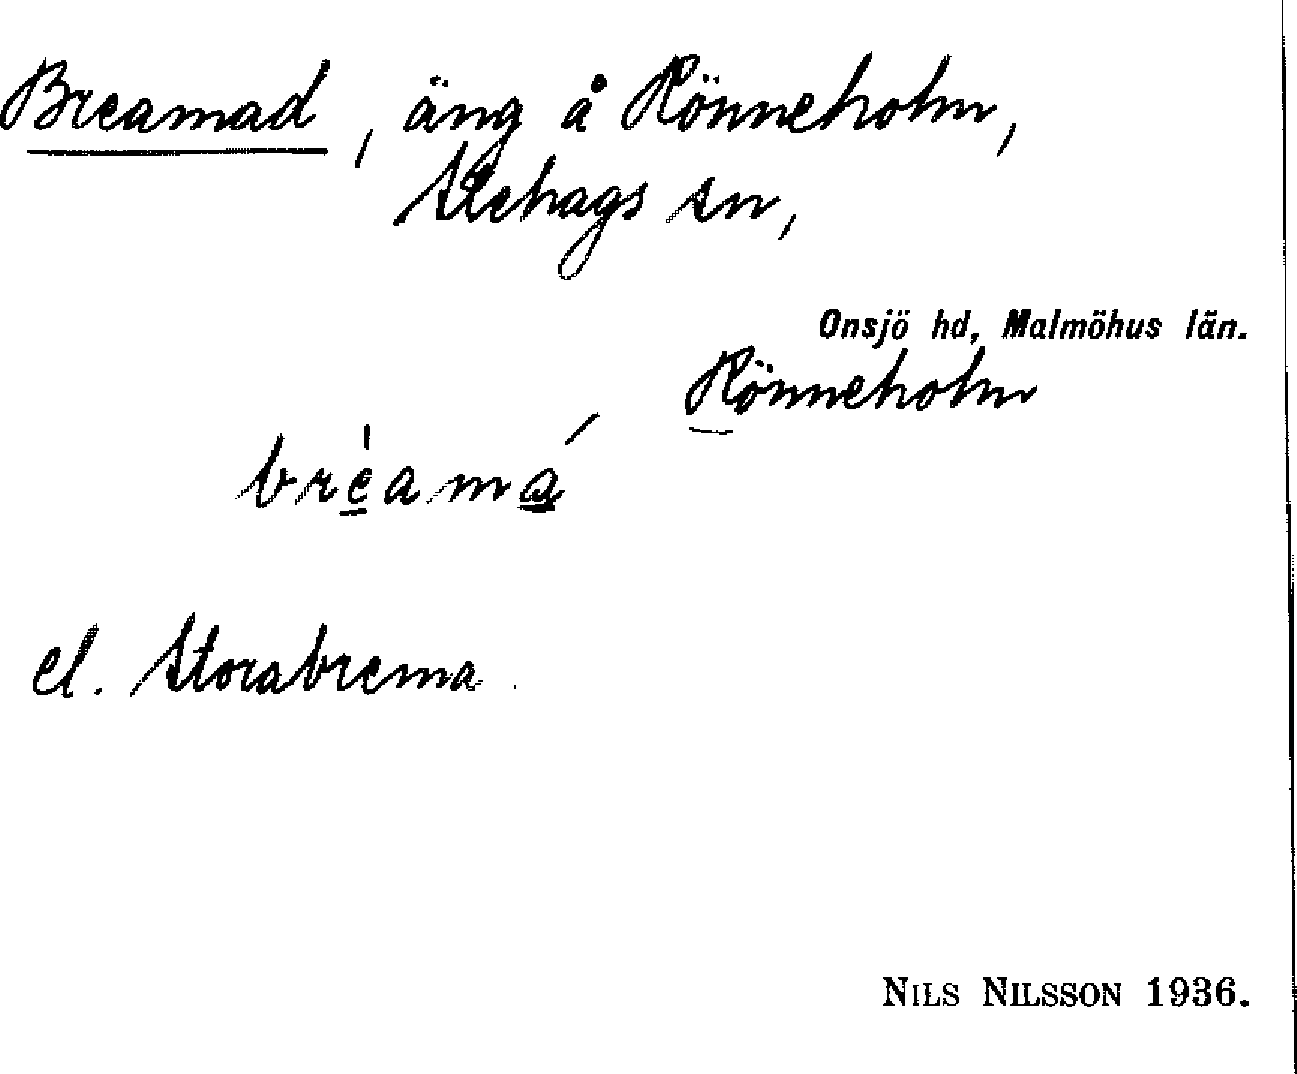 Breamad, äng å Rönneholm,
Stehags sn,
Onsjö hd, Malmöhus län.
Rönneholm
brèamá
el. Storabrema.
NILS NILSSON 1936.